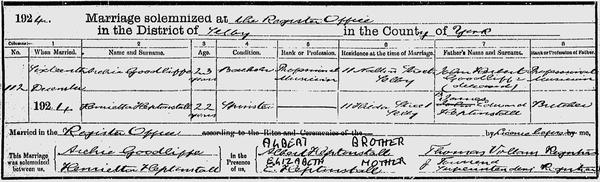 1924. Marriage solemnized at the Register Office
in the District of Selby in the County of York
Columns:— 1 2 3 4 5 6 7 8
No. When Married. Name and Surname. Age. Condition. Rank or Profession. Residence at the time of Marriage. Father's Name and Surname. Rank or Profession of Father.
112 Sixteenth December 1924 Archie Goodliffe 23 years Bachelor Professional Musician 11 Street Selby John Goodliffe (deceased) Professional Musician
Henrietta Heptonstall 22 years Spinster 11 Street Selby Edward Heptonstall Butcher
Married in the Register Office according to the Rites and Ceremonies of the by Licence before by me,
This Marriage was solemnized between us, Archie Goodliffe Henrietta Heptonstall
in the Presence of us, ALBERT BROTHER Albert Heptonstall
ELIZABETH MOTHER E. Heptonstall
Thomas Registrar
J Townend Superintendent Registrar